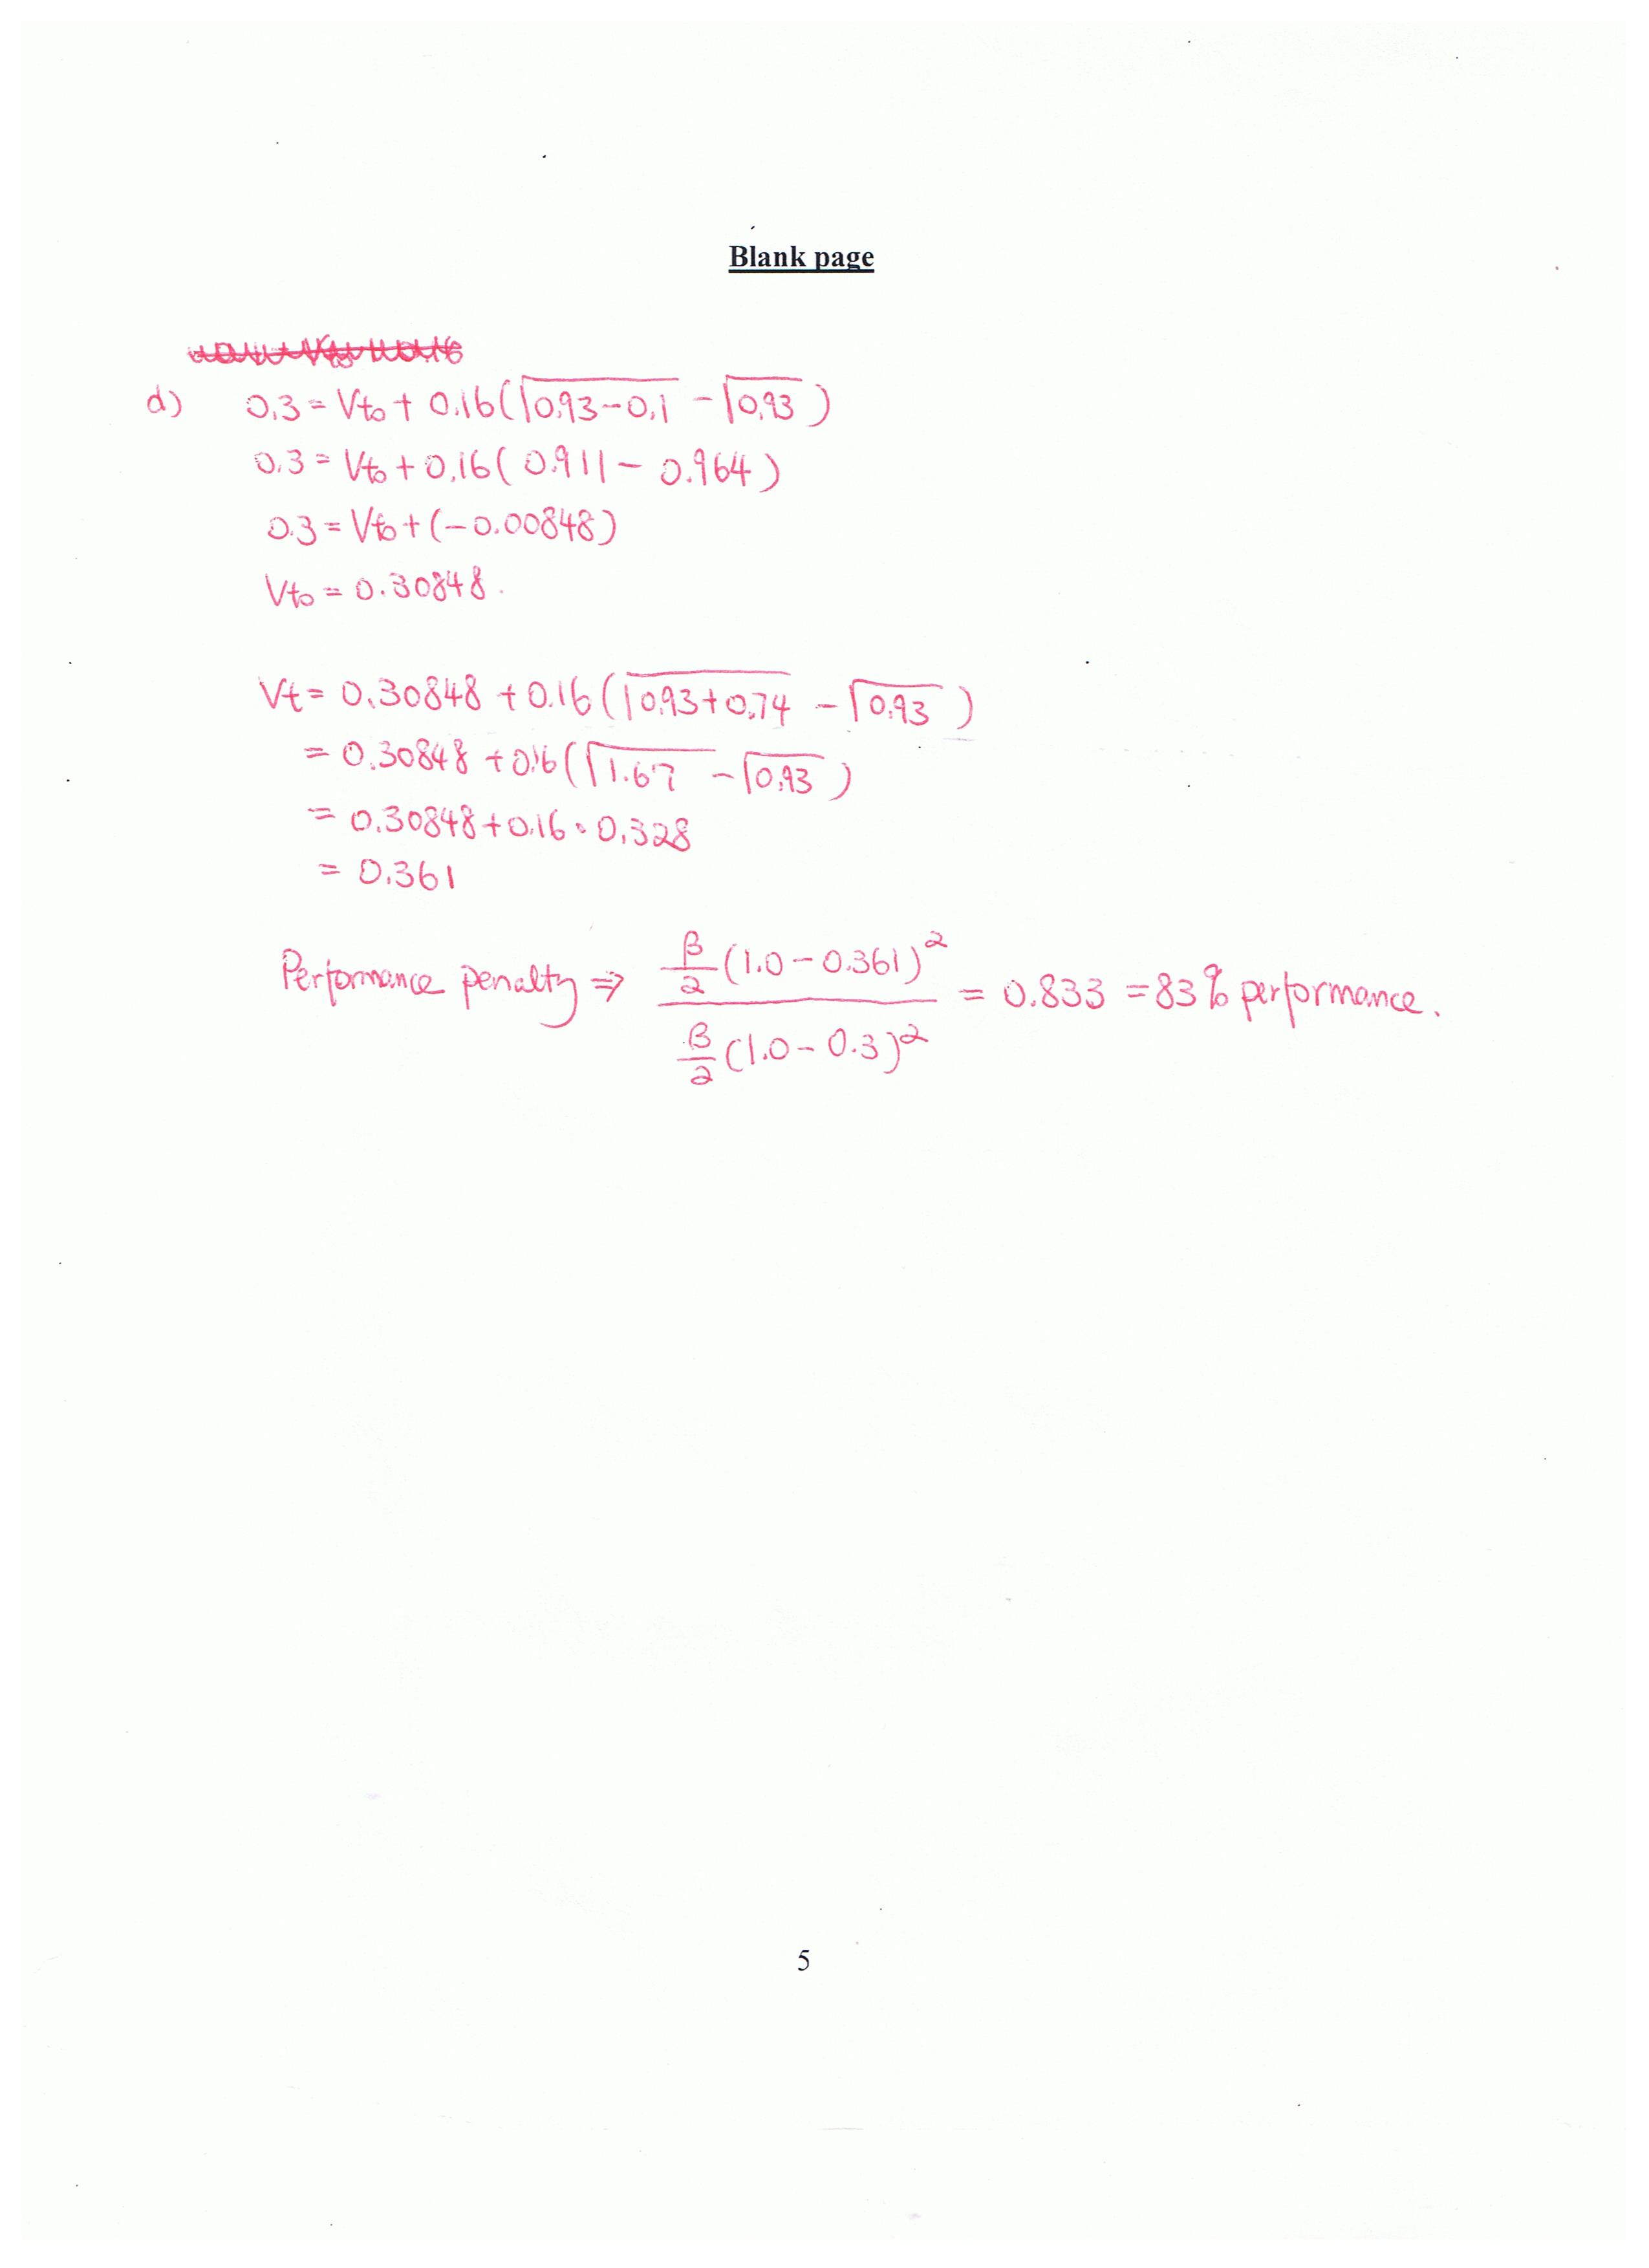 Blank page
d) 0.3 = Vto + 0.16(√0.93-0.1 - √0.93)
0.3 = Vto + 0.16(0.911 - 0.964)
0.3 = Vto + (-0.00848)
Vto = 0.30848.
Vt = 0.30848 + 0.16(√0.93+0.74 - √0.93)
= 0.30848 + 0.16(√1.67 - √0.93)
= 0.30848 + 0.16 · 0.328
= 0.361
Performance penalty ⇒ β/2 (1.0 - 0.361)² / β/2 (1.0 - 0.3)² = 0.833 = 83% performance.
5